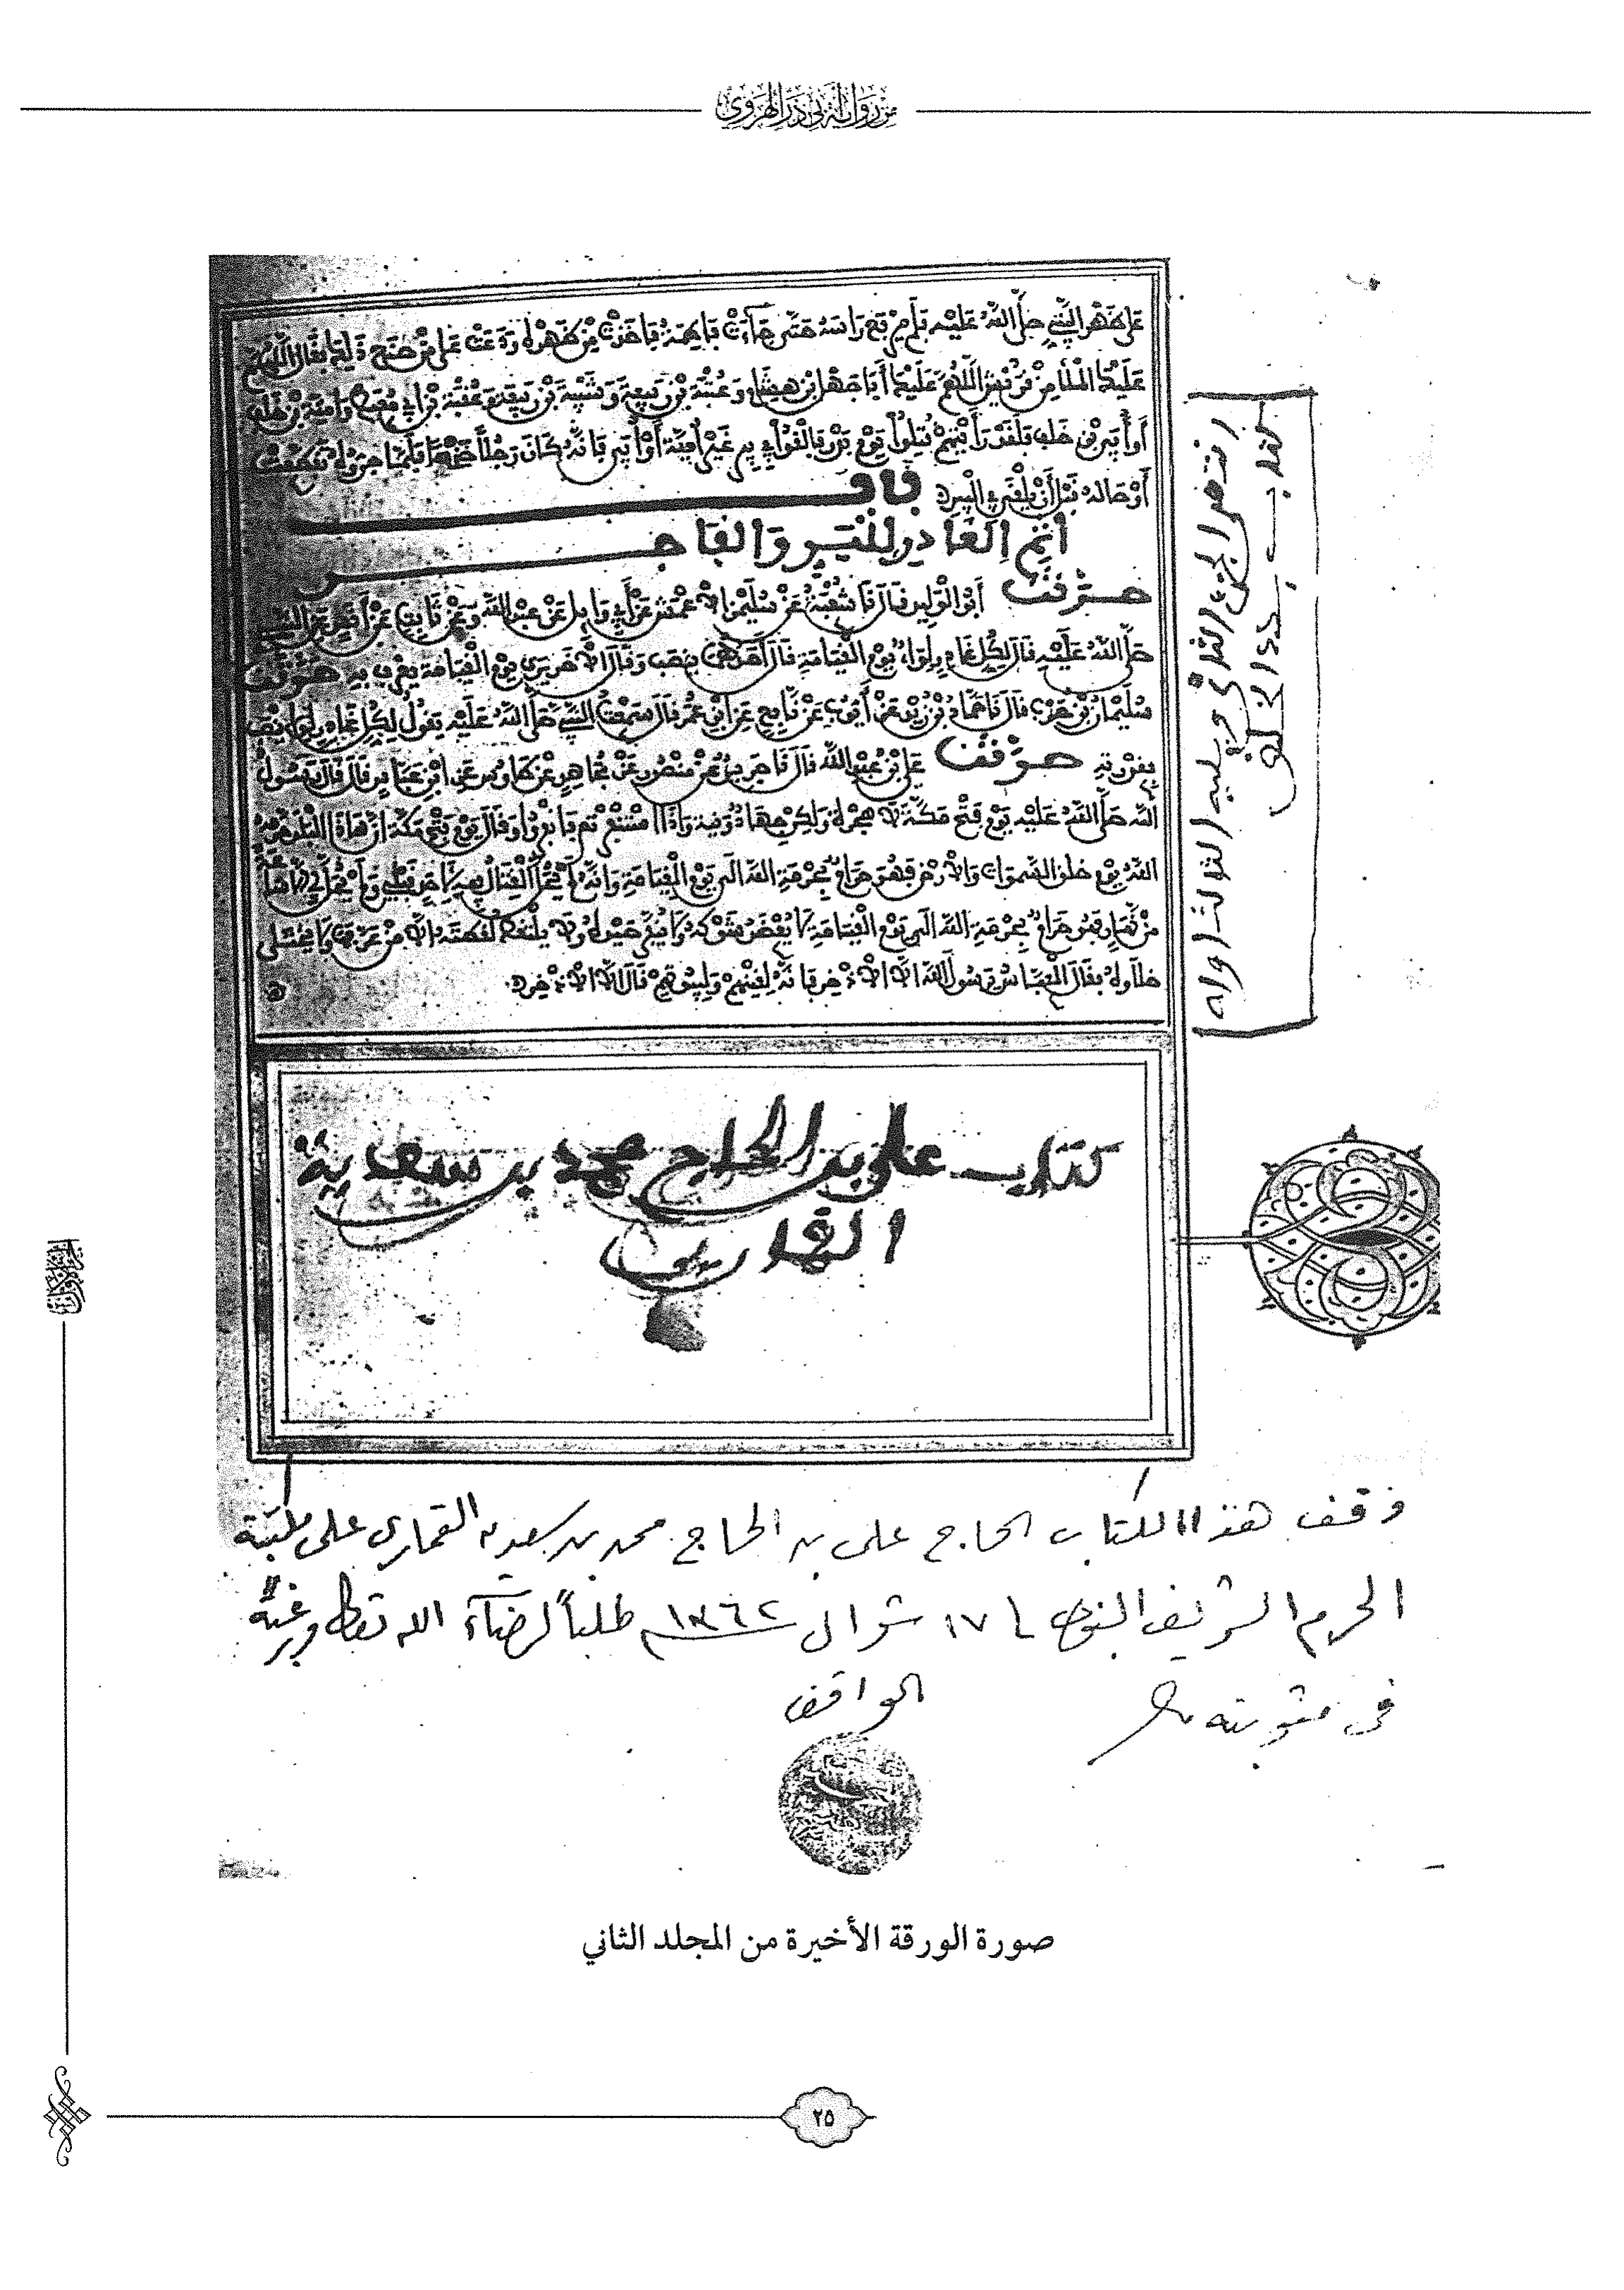 من رواية أبي ذر الهروي
على ظهر النبي صلى الله عليه فلم يرفع راسه حتى جاءت فاطمة فاخذت من ظهره ودعت على من صنع ذلك فقال اللهم
عليك الملأ من قريش اللهم عليك أبا جهل ابن هشام وعتبة بن ربيعة وشيبة بن ربيعة وعقبة بن أبي معيط وأمية بن خلف
أو أبي بن خلف فلقد رأيتهم قتلوا يوم بدر فألقوا في بير غير أمية أو أبي فإنه كان رجلا ضخما فلما جروه تقطعت
أوصاله قبل أن يلقى في البير باب
إثم الغادر للبر والفاجر
حدثنا أبو الوليد قال نا شعبة عن سليمن الاعمش عن أبي وايل عن عبد الله وعن ثابت عن أنس عن النبي
صلى الله عليه قال لكل غادر لواء يوم القيامة قال أحدهما ينصب وقال الاخر يرى يوم القيامة يعرف به حدثنا
سليمان بن حرب قال نا حماد بن زيد عن أيوب عن نافع عن ابن عمر قال سمعت النبي صلى الله عليه يقول لكل غادر لواء ينصب
بغدرته حدثنا علي بن عبد الله قال نا جرير عن منصور عن مجاهد عن طاوس عن ابن عباس قال قال رسول
الله صلى الله عليه يوم فتح مكة لا هجرة ولكن جهاد ونية واذا استنفرتم فانفروا وقال يوم فتح مكة ان هاذا البلد حرمه
الله يوم خلق السموات والارض فهو حرام بحرمة الله الى يوم القيامة وانه لم يحل القتال فيه لاحد قبلي ولم يحل لي الا ساعة
من نهار فهو حرام بحرمة الله الى يوم القيامة لا يعضد شوكه ولا ينفر صيده ولا يلتقط لقطته الا من عرفها ولا يختلى
خلاوه فقال العباس يرسول الله الا الاذخر فانه لقينهم ولبيوتهم قال الا الاذخر
انتهى الجزء الثاني ويليه الثالث اوله
كتاب بدء الخلق
كتاب علي بن الحاج محمد بن سعدية
القماري
وقف هذا الكتاب الحاج على بن الحاج محمد بن سعديه القماري على مكتبة
الحرم الشريف النبوي ١٧ شوال ١٣٦٢ طلباً لرضاء الله تعالى ورغبة
في مثوبته
الواقف
صورة الورقة الأخيرة من المجلد الثاني
٢٥